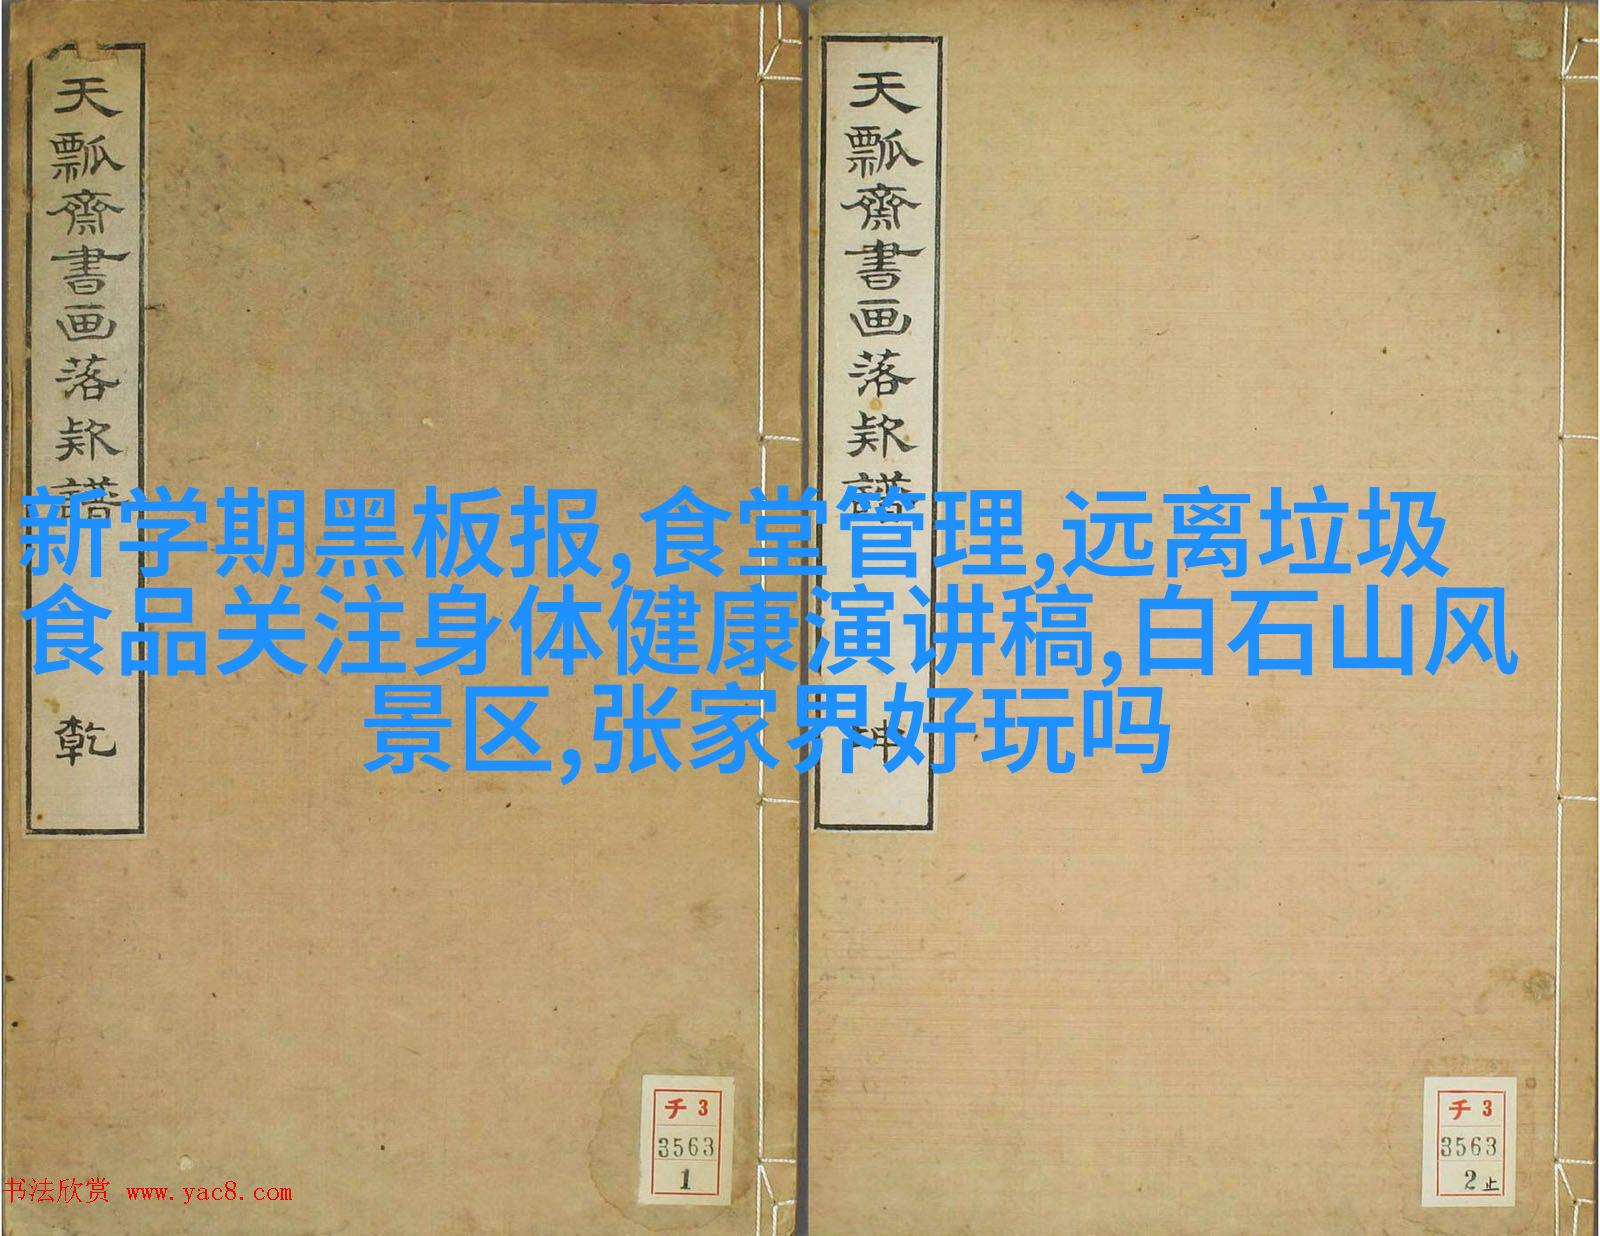 天瓢齋書画落欵譜
乾
天瓢齋書画落欵譜
坤
新学期黑板报,食堂管理,远离垃圾
食品关注身体健康演讲稿,白石山风
景区,张家界好玩吗
チ3
3563
1
チ3
3563
2止
书法欣赏 www.yac8.com